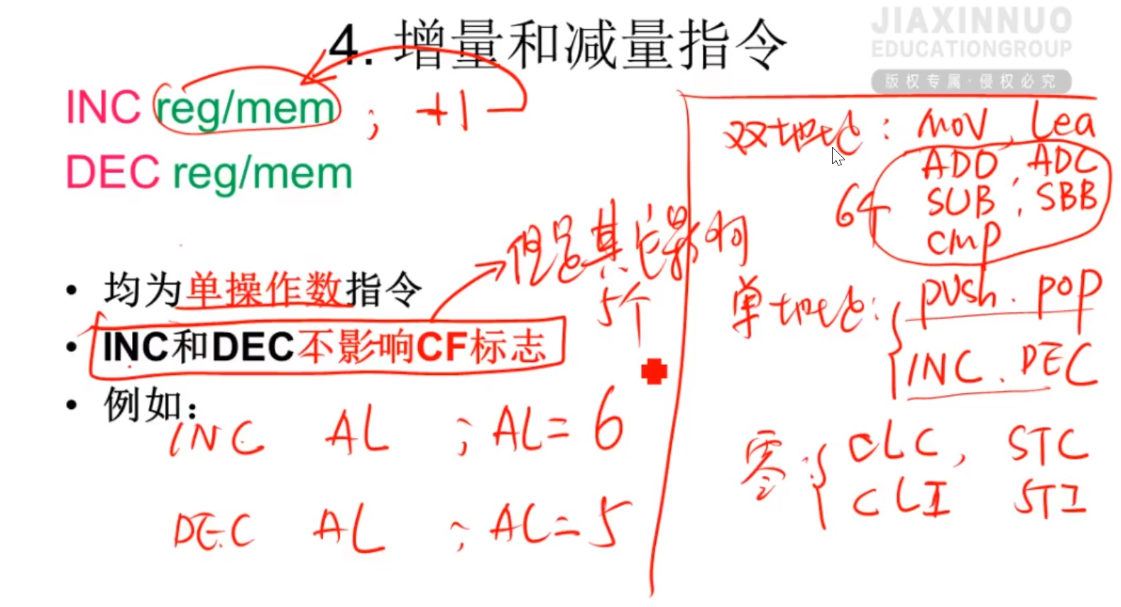 JIAXINNUO
EDUCATIONGROUP
版权专属·侵权必究
4. 增量和减量指令
INC reg/mem ; +1
DEC reg/mem
• 均为单操作数指令
• INC和DEC不影响CF标志
但是其它影响
5个
• 例如：
INC AL ; AL=6
DEC AL ; AL=5
双地址: MOV, Lea
ADD, ADC
SUB, SBB
CMP
6个
单地址: push. pop
INC. DEC
零: CLC, STC
CLI STI